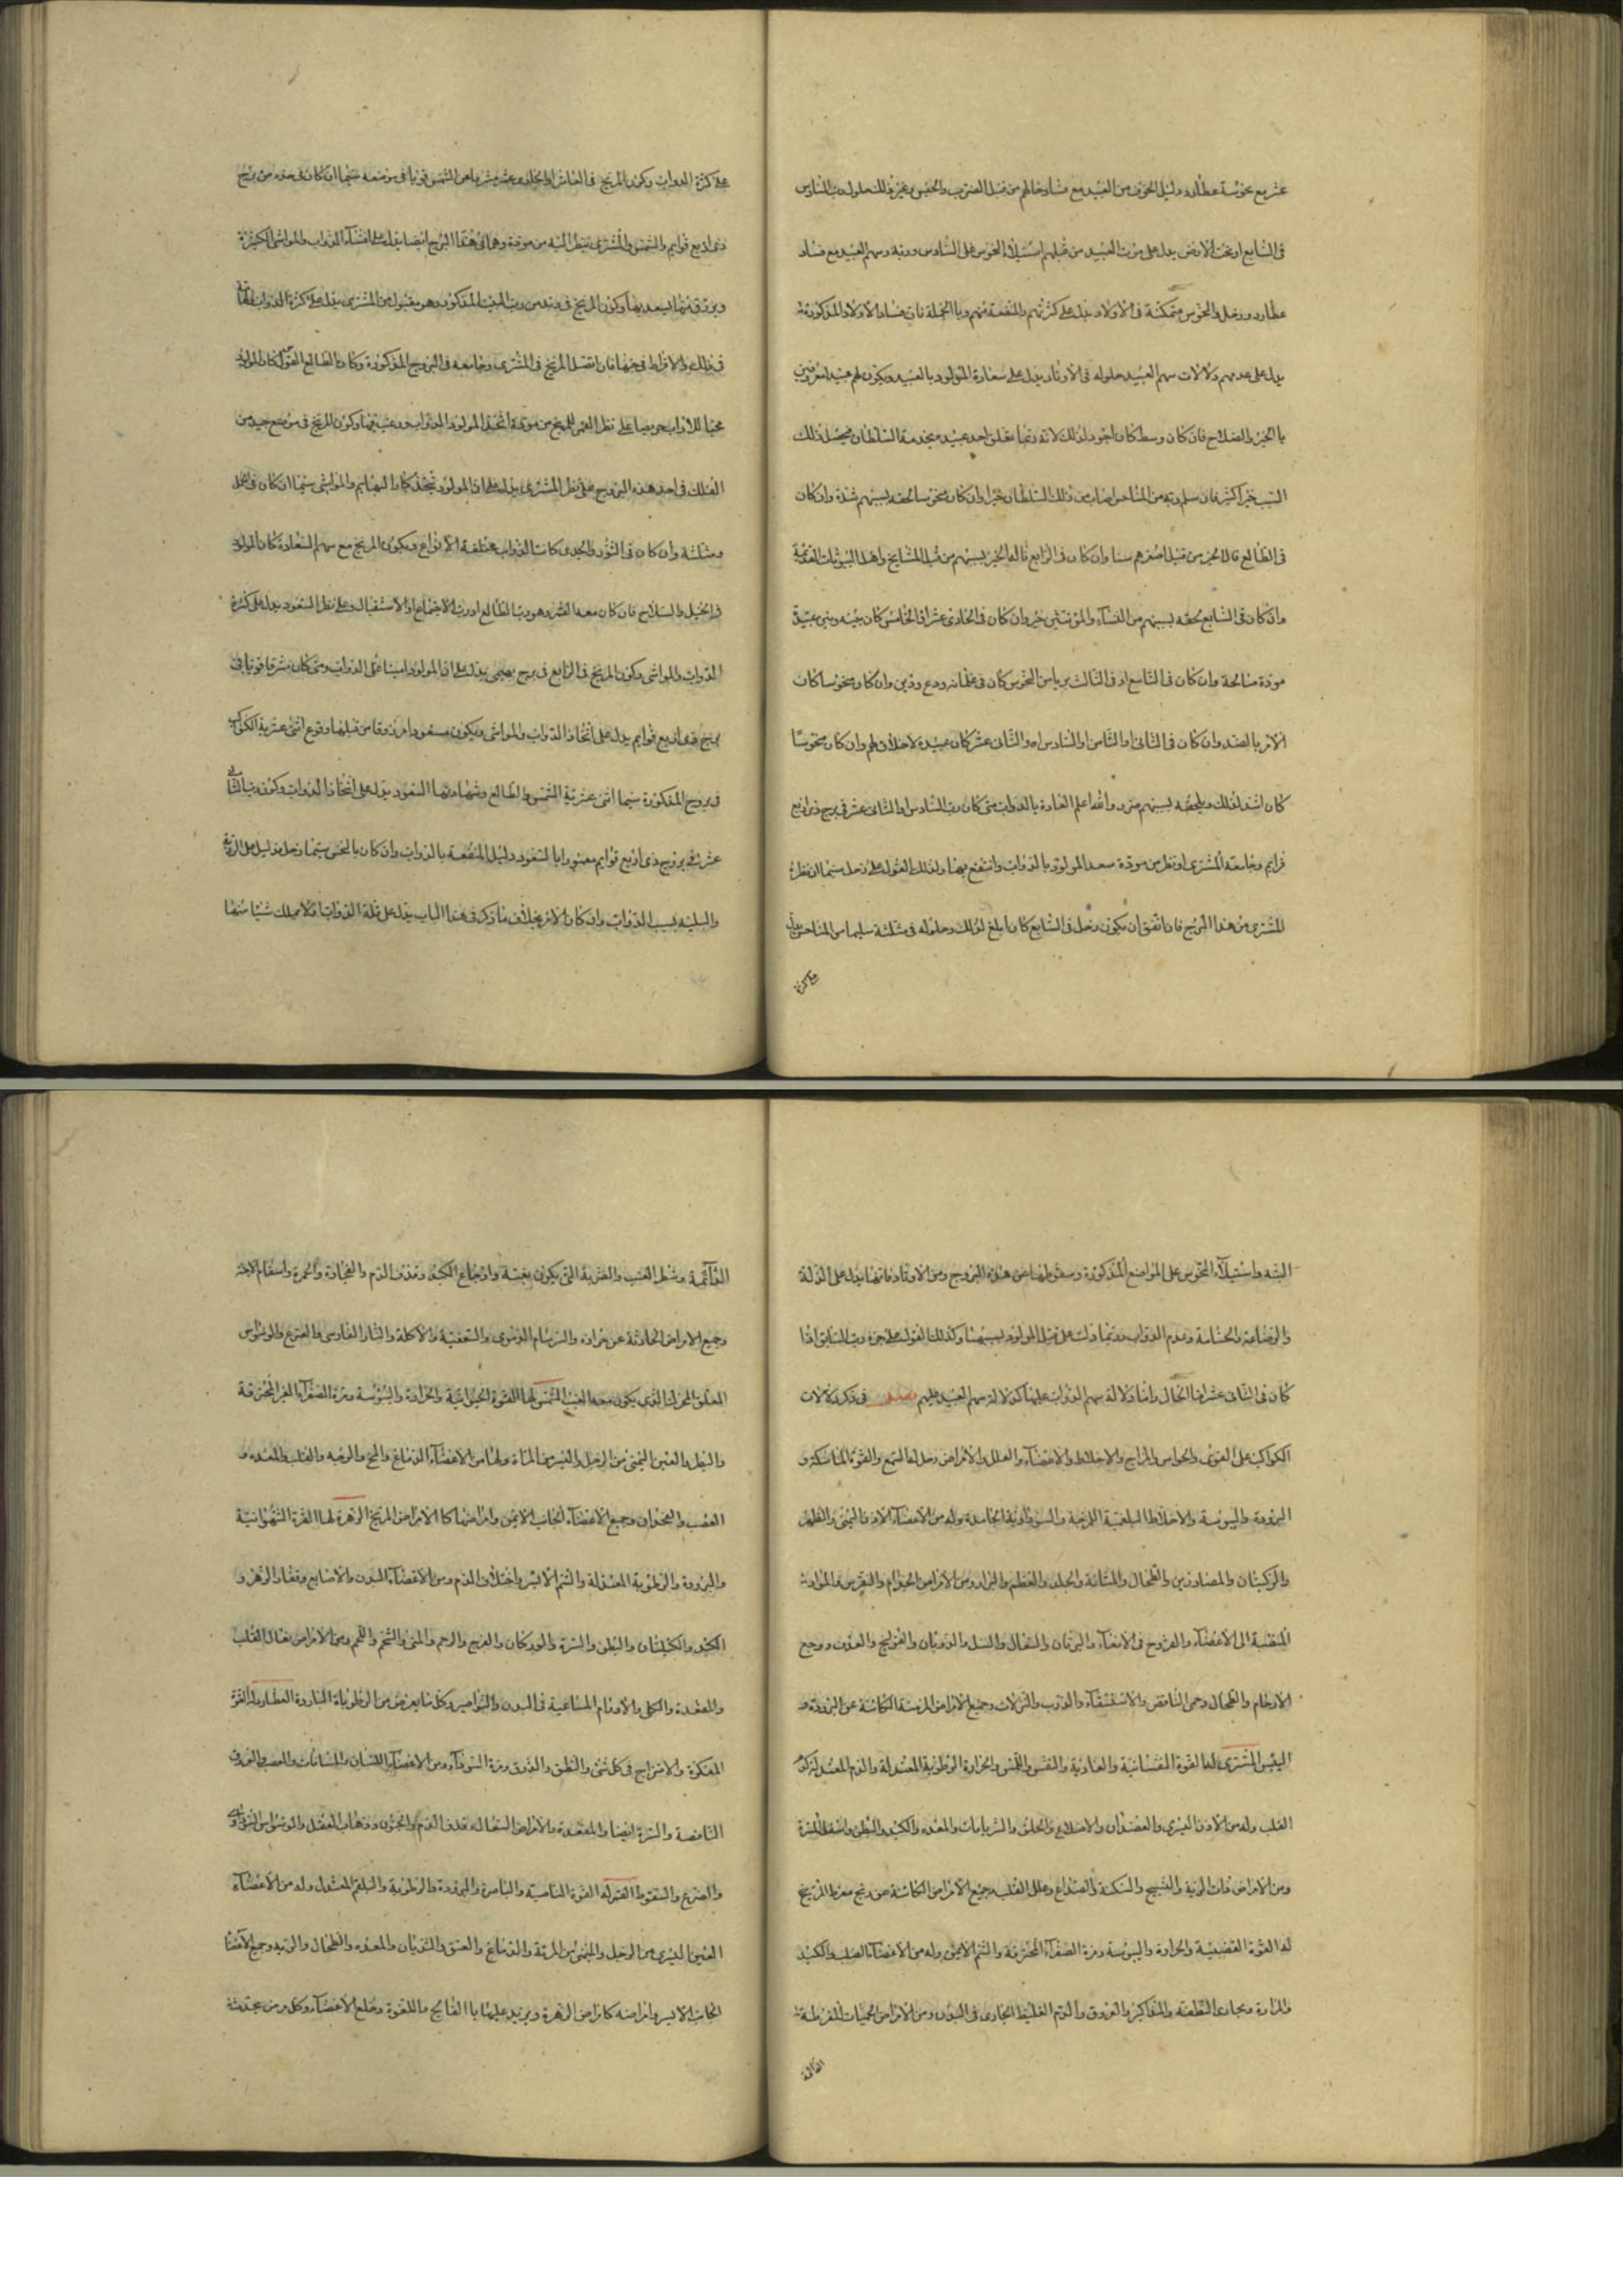 عشر مع نحوسة عطارد دليل الحزن من العبيد مع فساد حالهم من قبل الضرب والحبس وغير ذلك حلول رب السادس
فى السابع او تحت الارض يدل على موت العبيد من قبلهم استيلاء النحوس على السادس وربه وسهم العبيد مع فساد
عطارد وزحل والنحوس متمكنة فى الاوتاد يدل على كثرتهم والمنفعة منهم وبالجملة فان فساد الاولاد المذكورة
يدل على عدمهم ودلالات سهم العبيد حلوله فى الاوتاد يدل على سعادة المولود بالعبيد ويكون لهم عبيد معروفين
بالخير والصلاح فان كان وسط كان اجود لذلك لانه ربما تعلق احد عبيده بخدمة السلطان فيحصل لذلك
السبب خيرا كثير فان سلم ربه من المناحس اصاب من ذلك السلطان خيرا وان كان منحوسا لحقه بسببهم شدة وان كان
فى الطالع فالخير من قبل اصغرهم سنا وان كان فى الرابع ناله الخير بسببهم من قبل المشايخ واهل البيوتات القديمة
وان كان فى السابع لحقه بسببهم من النساء والمؤنثين خير وان كان فى الحادى عشر او الخامس كان بينه وبين عبيده
مودة صالحة وان كان فى التاسع او فى الثالث بريا من النحوس كان فى غلمانه ورع ودين وان كان منحوسا كان
الامر بالضد وان كان فى الثانى او الثامن او السادس او الثانى عشر كان عبيده لاخلاق لهم وان كان منحوسا
كان اشد لذلك ويلحقه بسببهم ضرر واما علم السعادة بالدواب متى كان رب السادس او الثانى عشر فى برج ذى اربع
قوايم وجامعه المشترى او نظر من مودة سعد المولود بالدواب وانتفع بها ولذلك القول على زحل سيما ان نظر
المشترى من هذا البرج فان اتفق ان يكون زحل فى السابع كان ابلغ لذلك وحلوله فى مثلثة سليما من المناحس يدل
على كثرة
على كثرة الدواب وكون المريخ فى العاشر او الحادى عشر مشرقا من الشمس قويا فى موضعه سيما ان كان فى حده من برج
ذى اربع قوايم والشمس والمشترى ينظر اليه من مودة وهما فى هذا البرج ايضا يدل على اقتناء الدواب والمواشى الكثيرة
ويرزق منها ويسعد بها وكون المريخ فى وتد من رب البيت المذكور وهو مقبول من المشترى يدل على كثرة الدواب
فى ذلك والافراط فى حبها فان اتصل المريخ فى المشترى وجامعه فى البروج المذكورة وكان بالطالع القول كان المولود
محبا للدواب حريصا على نظر القمر للمريخ من مودة اتخذ المولود الدواب ورغب فيها وكون المريخ فى موضع جيد من
الفلك فى احد هذه البروج على نظر المشترى يدل على ان المولود يتخذ كبار البهايم والمواشى سيما ان كان فى الحمل
ومثلثه وان كان فى الثور والجدى كانت الدواب مختلفة الانواع ويكون المريخ مع سهم السعادة كان المولود
فى الخيل والسلاح فان كان معه القمر وهو رب الطالع او رب الاجتماع او الاستقبال وعلى نظر السعود يدل على كثرة
الدواب والمواشى وكون المريخ فى الرابع فى برج بهيمى يدل على ان المولود امينا على الدواب ومتى كان مشرقا قويا فى
برج ذى اربع قوايم يدل على اتخاذ الدواب والمواشى ويكون مسعودا مرزوقا من قبلها وقوع اثنى عشرية الكواكب
فى بروج المذكورة سيما اثنى عشرية الشمس والطالع وشهادتها السعود يدل على اتخاذ الدواب وكون رب الثانى
عشر فى بروج ذى اربع قوايم معبورا بالسعود دليل المنفعة بالدواب وان كان بالنحس سيما زحل فدليل على الرزية
والبلية بسبب الدواب وان كان الامر بخلاف ما ذكر فى هذا الباب يدل على قلة الدواب فلا يملك شيئا منها
البته واستيلاء النحوس على المواضع المذكورة وسقوطها من هذه البروج ومن الاوتاد فانها يدل على الذلة
والوضاعة والخساسة وعدم الدواب وربما دلت على قتل المولود بسببها وكذلك القول على جزء رب السابق اذا
كان فى الثانى عشر فى الحال واما دلالة سهم الدواب عليها كدلالة سهم العبيد عليهم فصل فى ذكر دلالات
الكواكب على القوى والحواس والمزاج والاخلاط والاعضاء والعلل والامراض زحل له السمع والقوة الماسكة و
البرودة واليبوسة والاخلاط البلغمية اللزجة والسوداوية الجامدة وله من الاعضاء الاذن اليمنى والظهر
والركبتان والمصارين والطحال والمثانة والجلد والعظم والبراز ومن الامراض الجذام والنقرس والمواد
المنصبة الى الاعضاء والقروح فى الامعاء واليرقان والسعال والسل والذوبان والقولنج والعرق ووجع
الارحام والطحال وحمى النافض والاستسقاء والذرب والنزلات وجميع الامراض المزمنة الكائنة عن البرودة و
اليبس المشترى له القوة النفسانية والغاذية والنفس واللمس والحرارة الرطوبة المعتدلة والدم المعتدل
القلب وله من الاذن اليسرى والعضدان والاضلاع والحلق والشريانات والمعده والكبد والبطن واسفل السرة
ومن الامراض ذات الرية والتشنج والسكتة والصداع وعلل القلب جميع الامراض الكائنة عن ريح مفرط المريخ
له القوة الغضبية والحرارة واليبوسة ومرة الصفراء المحترقة والشم الايمن وله من الاعضاء الصلب والكبد
والمرارة ومجارى النطفة والمذاكير والعروق والدم الغليظ الجارى فى البدن ومن الامراض الحميات المفرطة
الدائمة
الدائمة وشطر الغب والضربة التى يكون بغتة واوجاع الكبد وقذف الدم والفجاءة والحمرة واسقام الاجنة
وجميع الامراض الحادثة عن حرارة والبرسام الدموى والشقيقة والاكلة والنار الفارسى والفزع والوسواس
المقلق المحرك الذى يكون معه الغيب الشمس لها القوة الحيوانية والحرارة واليبوسة ومرة الصفراء الغير المحترقة
والبطن والعين اليمنى من الرجل واليسرى من المراة ولها من الاعضاء الدماغ والمخ والوجه والقلب والمعده و
العصب والفخذان وجميع الاعضاء الجانب الايمن وامراضها كالامراض المريخ الزهرة لها القوة الشهوانية
والبرودة والرطوبة المعتدلة والشم الايسر واختلاف الدم ومن الاعضاء البدن والاصابع وفقار الزهر و
الكبد والكليتان والبطن والسرة والوركان والفرج والرحم والمنى والشحم واللحم ومن الامراض
والمعده والكلى والاورام الساعية فى البدن والنواصير وكل ما يعرض من الرطوبات الباردة العطارد له القوة
المفكرة والامتزاج فى كل شئ والنطق والذوق ومرة السوداء ومن الاعضاء اللسان والعصب والعروق
النابضة والسرة ايضا والمقعدة والامراض السعال وقذف الدم والجنون وذهاب العقل والوسواس السوداوى
والصرع والسقوط القمر له القوة النامية والباصرة والبرودة والرطوبة والبلغم المعتدل وله من الاعضاء
العين اليسرى من الرجل واليمنى من المراة والدماغ والعنق والثديان والمعده والطحال والرية وجميع الاعضاء
الجانب الايسر وامراضه كامراض الزهرة ويزيد عليها بالفالج واللقوة وخلع الاعضاء وكل مرض يحدث